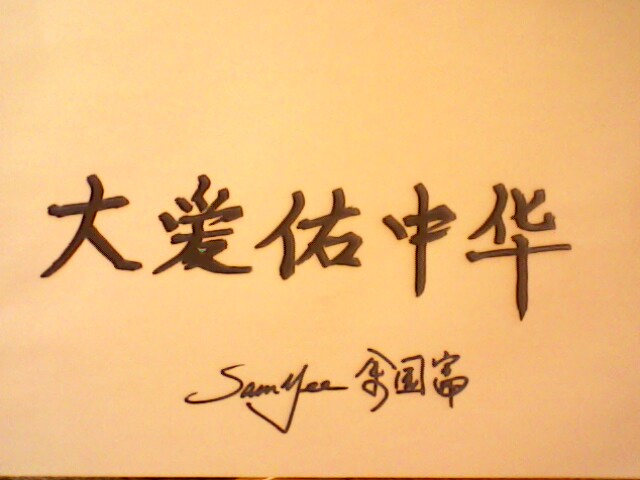 大爱佑中华
Sam Yee 余国富